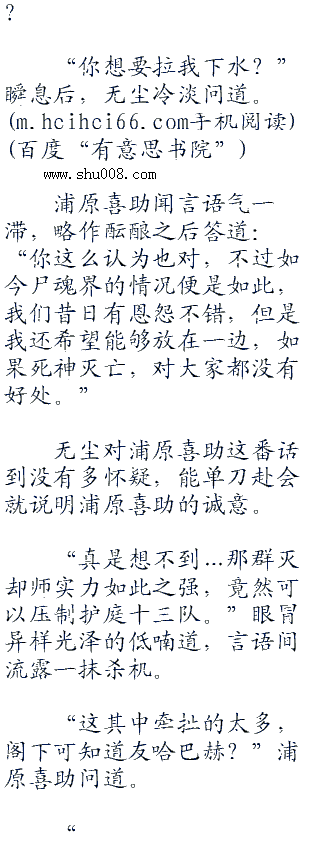 ?
“你想要拉我下水？”
瞬息后，无尘冷淡问道。
(m.hcihci66.com手机阅读)
(百度“有意思书院”)
www.shu008.com
浦原喜助闻言语气一
滞，略作酝酿之后答道：
“你这么认为也对，不过如
今尸魂界的情况便是如此，
我们昔日有恩怨不错，但是
我还希望能够放在一边，如
果死神灭亡，对大家都没有
好处。”
无尘对浦原喜助这番话
到没有多怀疑，能单刀赴会
就说明浦原喜助的诚意。
“真是想不到…那群灭
却师实力如此之强，竟然可
以压制护庭十三队。”眼冒
异样光泽的低喃道，言语间
流露一抹杀机。
“这其中牵扯的太多，
阁下可知道友哈巴赫？”浦
原喜助问道。
“